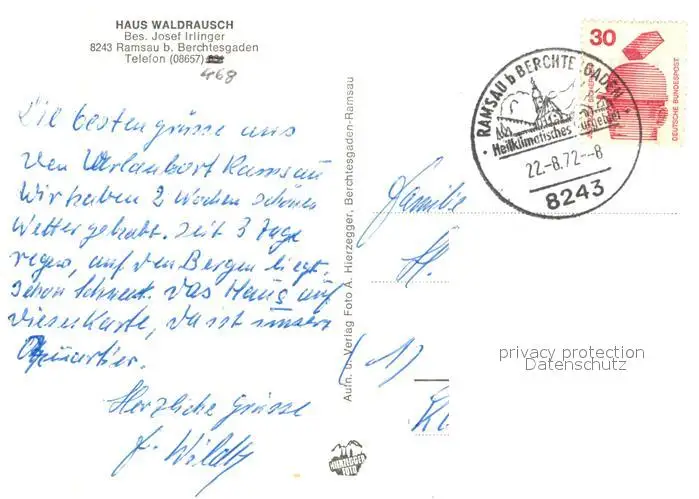 HAUS WALDRAUSCH
Bes. Josef Irlinger
8243 Ramsau b. Berchtesgaden
Telefon (08657)
468
Die besten grüsse aus
den Urlaubort Ramsau
Wir haben 2 Wochen schönes
Wetter gehabt. seit 3 Tage
regen, auf den Bergen liegt
schon Schnee. Das Haus auf
dieser Karte, da ist unser
Quartier.
Herzliche Grüsse
Aufn. u. Verlag Foto A. Hierzegger, Berchtesgaden-Ramsau
HIERZEGGER
FOTO
RAMSAU b BERCHTESGADEN
Heilklimatisches Kurgebiet
22.-8.72--8
8243
30
DEUTSCHE BUNDESPOST
Familie
H.
(1)
privacy protection
Datenschutz